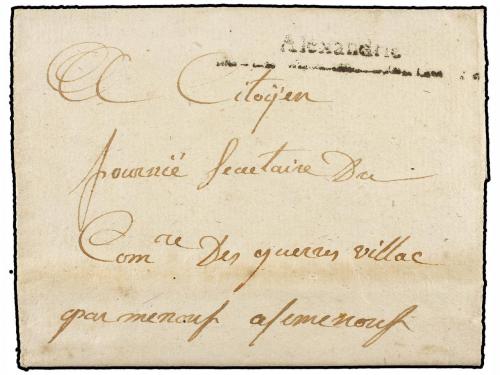 Alexandrie
A Citoÿen
fournié Secretaire Du
Com.re Des guerres villac
par menouf a semenouf